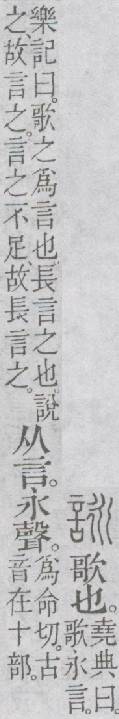 詠 歌也。堯典曰。
歌永言。
樂記曰。歌之爲言也、長言之也。說
之故言之。言之不足、故長言之。
从言。永聲。
爲命切。古
音在十部。